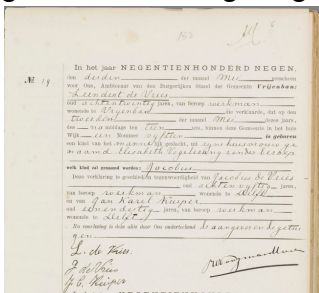 152
In het jaar NEGENTIENHONDERD NEGEN,
Nº. 19
den derden der maand Mei verscheen
voor Ons, Ambtenaar van den Burgerlijken Stand der Gemeente Vrijenban:
Leendert de Vries
oud achtentwintig jaren, van beroep werkman
wonende te Vrijenban die verklaarde, dat op den
tweeden der maand Mei dezes jaars,
des na middags ten een ure, binnen deze Gemeente in het huis
Wijk Nommer vijftien is geboren
een kind van het mannelijk geslacht, uit zijne huisvrouw ge
naamd Elisabeth Vogelezang zonder beroep
welk kind zal genaamd worden: Jacobus
Deze verklaring is geschied in tegenwoordigheid van Jacobus de Vries
oud achtenvijftig jaren,
van beroep werkman wonende te Delft
en van Jan Karel Kuiper
oud eenendertig jaren, van beroep werkman
wonende te Delft
Na voorlezing is deze akte door Ons onderteekend de aangever en de getui
gen.
L. de Vries.
J de Vries
J. C. Kuiper